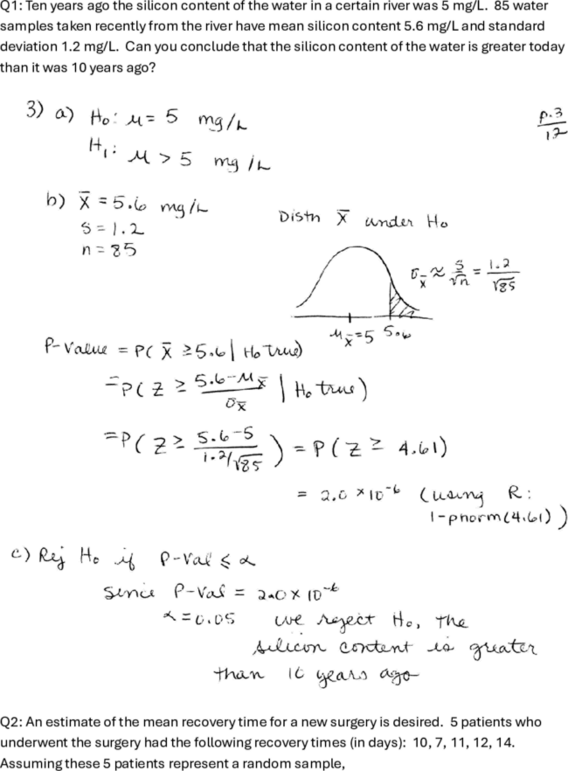 Q1: Ten years ago the silicon content of the water in a certain river was 5 mg/L. 85 water
samples taken recently from the river have mean silicon content 5.6 mg/L and standard
deviation 1.2 mg/L. Can you conclude that the silicon content of the water is greater today
than it was 10 years ago?
3) a) H₀: μ = 5 mg/L
p.3/12
H₁: μ > 5 mg/L
b) x̄ = 5.6 mg/L
s = 1.2
n = 85
Distn x̄ under H₀
σ_x̄ ≈ s/√n = 1.2/√85
μ_x̄ = 5 5.6
P-value = P( x̄ ≥ 5.6 | H₀ true)
= P( Z ≥ (5.6 - μ_x̄)/σ_x̄ | H₀ true)
= P( Z ≥ (5.6 - 5)/(1.2/√85) ) = P( Z ≥ 4.61)
= 2.0 × 10⁻⁶ (using R:
1-pnorm(4.61))
c) Rej H₀ if P-val ≤ α
since P-val = 2.0 × 10⁻⁶
α = 0.05 we reject H₀, the
silicon content is greater
than 10 years ago
Q2: An estimate of the mean recovery time for a new surgery is desired. 5 patients who
underwent the surgery had the following recovery times (in days): 10, 7, 11, 12, 14.
Assuming these 5 patients represent a random sample,